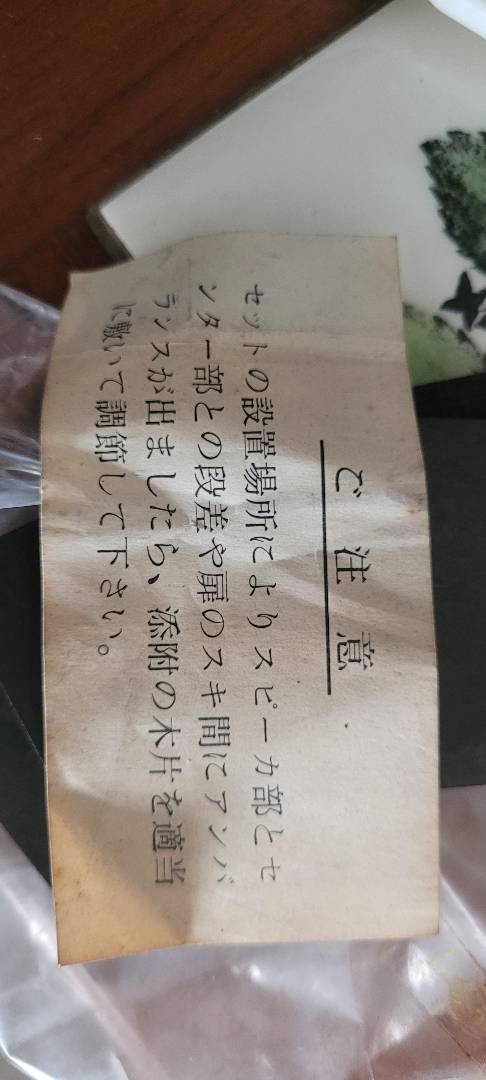 ご注意
セットの設置場所によりスピーカ部とセ
ンター部との段差や扉のスキ間にアンバ
ランスが出ましたら、添附の木片を適当
に敷いて調節して下さい。